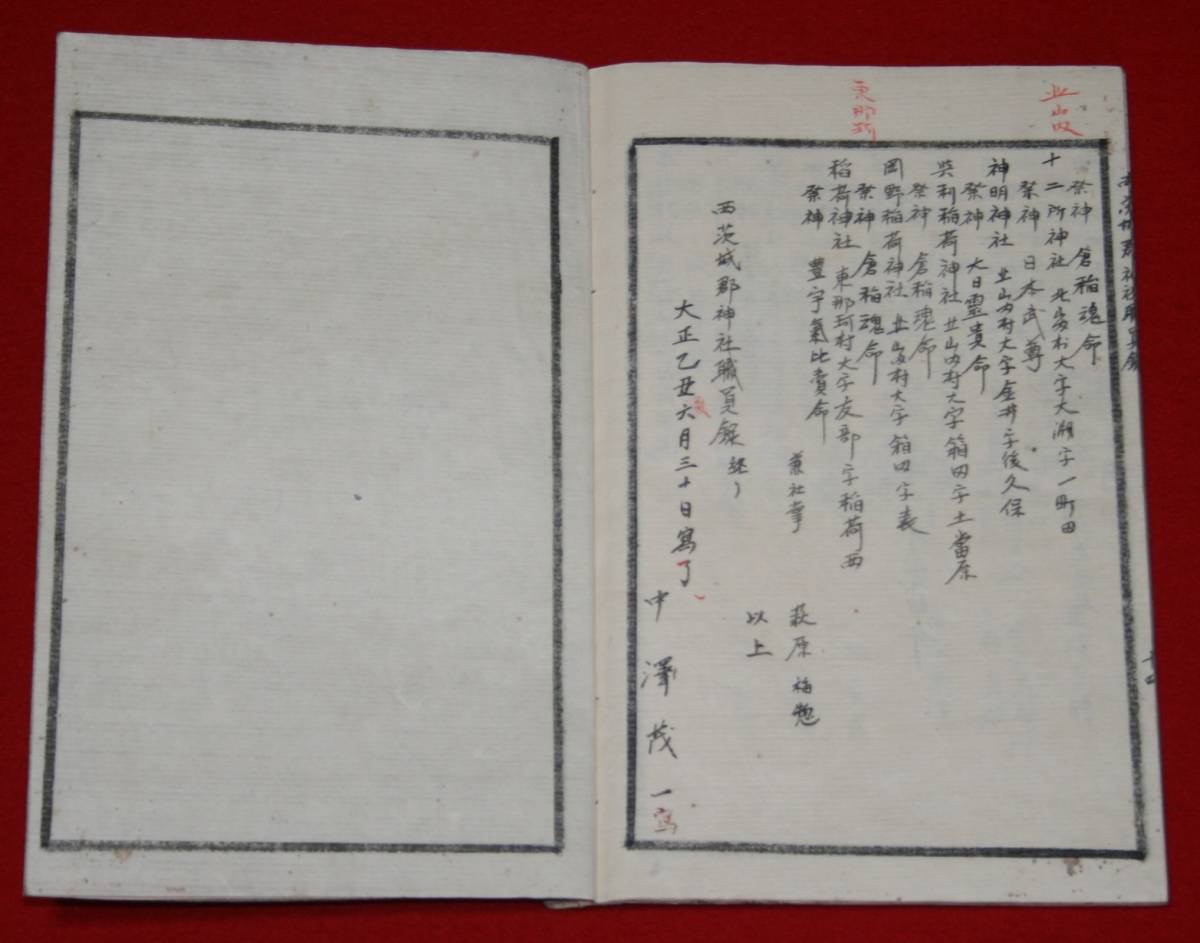 北山内
東那珂
祭神 倉稲魂命
十二所神社 北山内村大字大渕字一町田
祭神 日本武尊
神明神社 北山内村大字金井字後久保
祭神 大日霊貴命
稲荷神社 北山内村大字箱田字土當原
祭神 倉稲魂命
岡野稲荷神社 北山内村大字箱田字表
祭神 倉稲魂命
稲荷神社 東那珂村大字友部字稲荷西
祭神 豊宇氣比賣命
兼社掌 萩原
以上
西茨城郡神社職員録 終
大正乙丑六月三十日寫了
中澤茂一寫